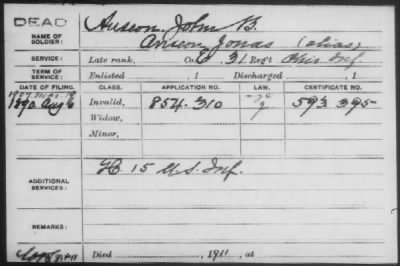 DEAD
NAME OF SOLDIER: Auson, John B.
Anson Jonas (alias)
SERVICE: Late rank, Co. 31 Reg't Ohio Inf.
TERM OF SERVICE: Enlisted , 1 Discharged , 1
DATE OF FILING. CLASS. APPLICATION NO. LAW. CERTIFICATE NO.
1890. Aug 6 Invalid, 854.310 593 395
Widow,
Minor,
ADDITIONAL SERVICES: H 15 U.S. Inf.
REMARKS:
Died , 1911, at